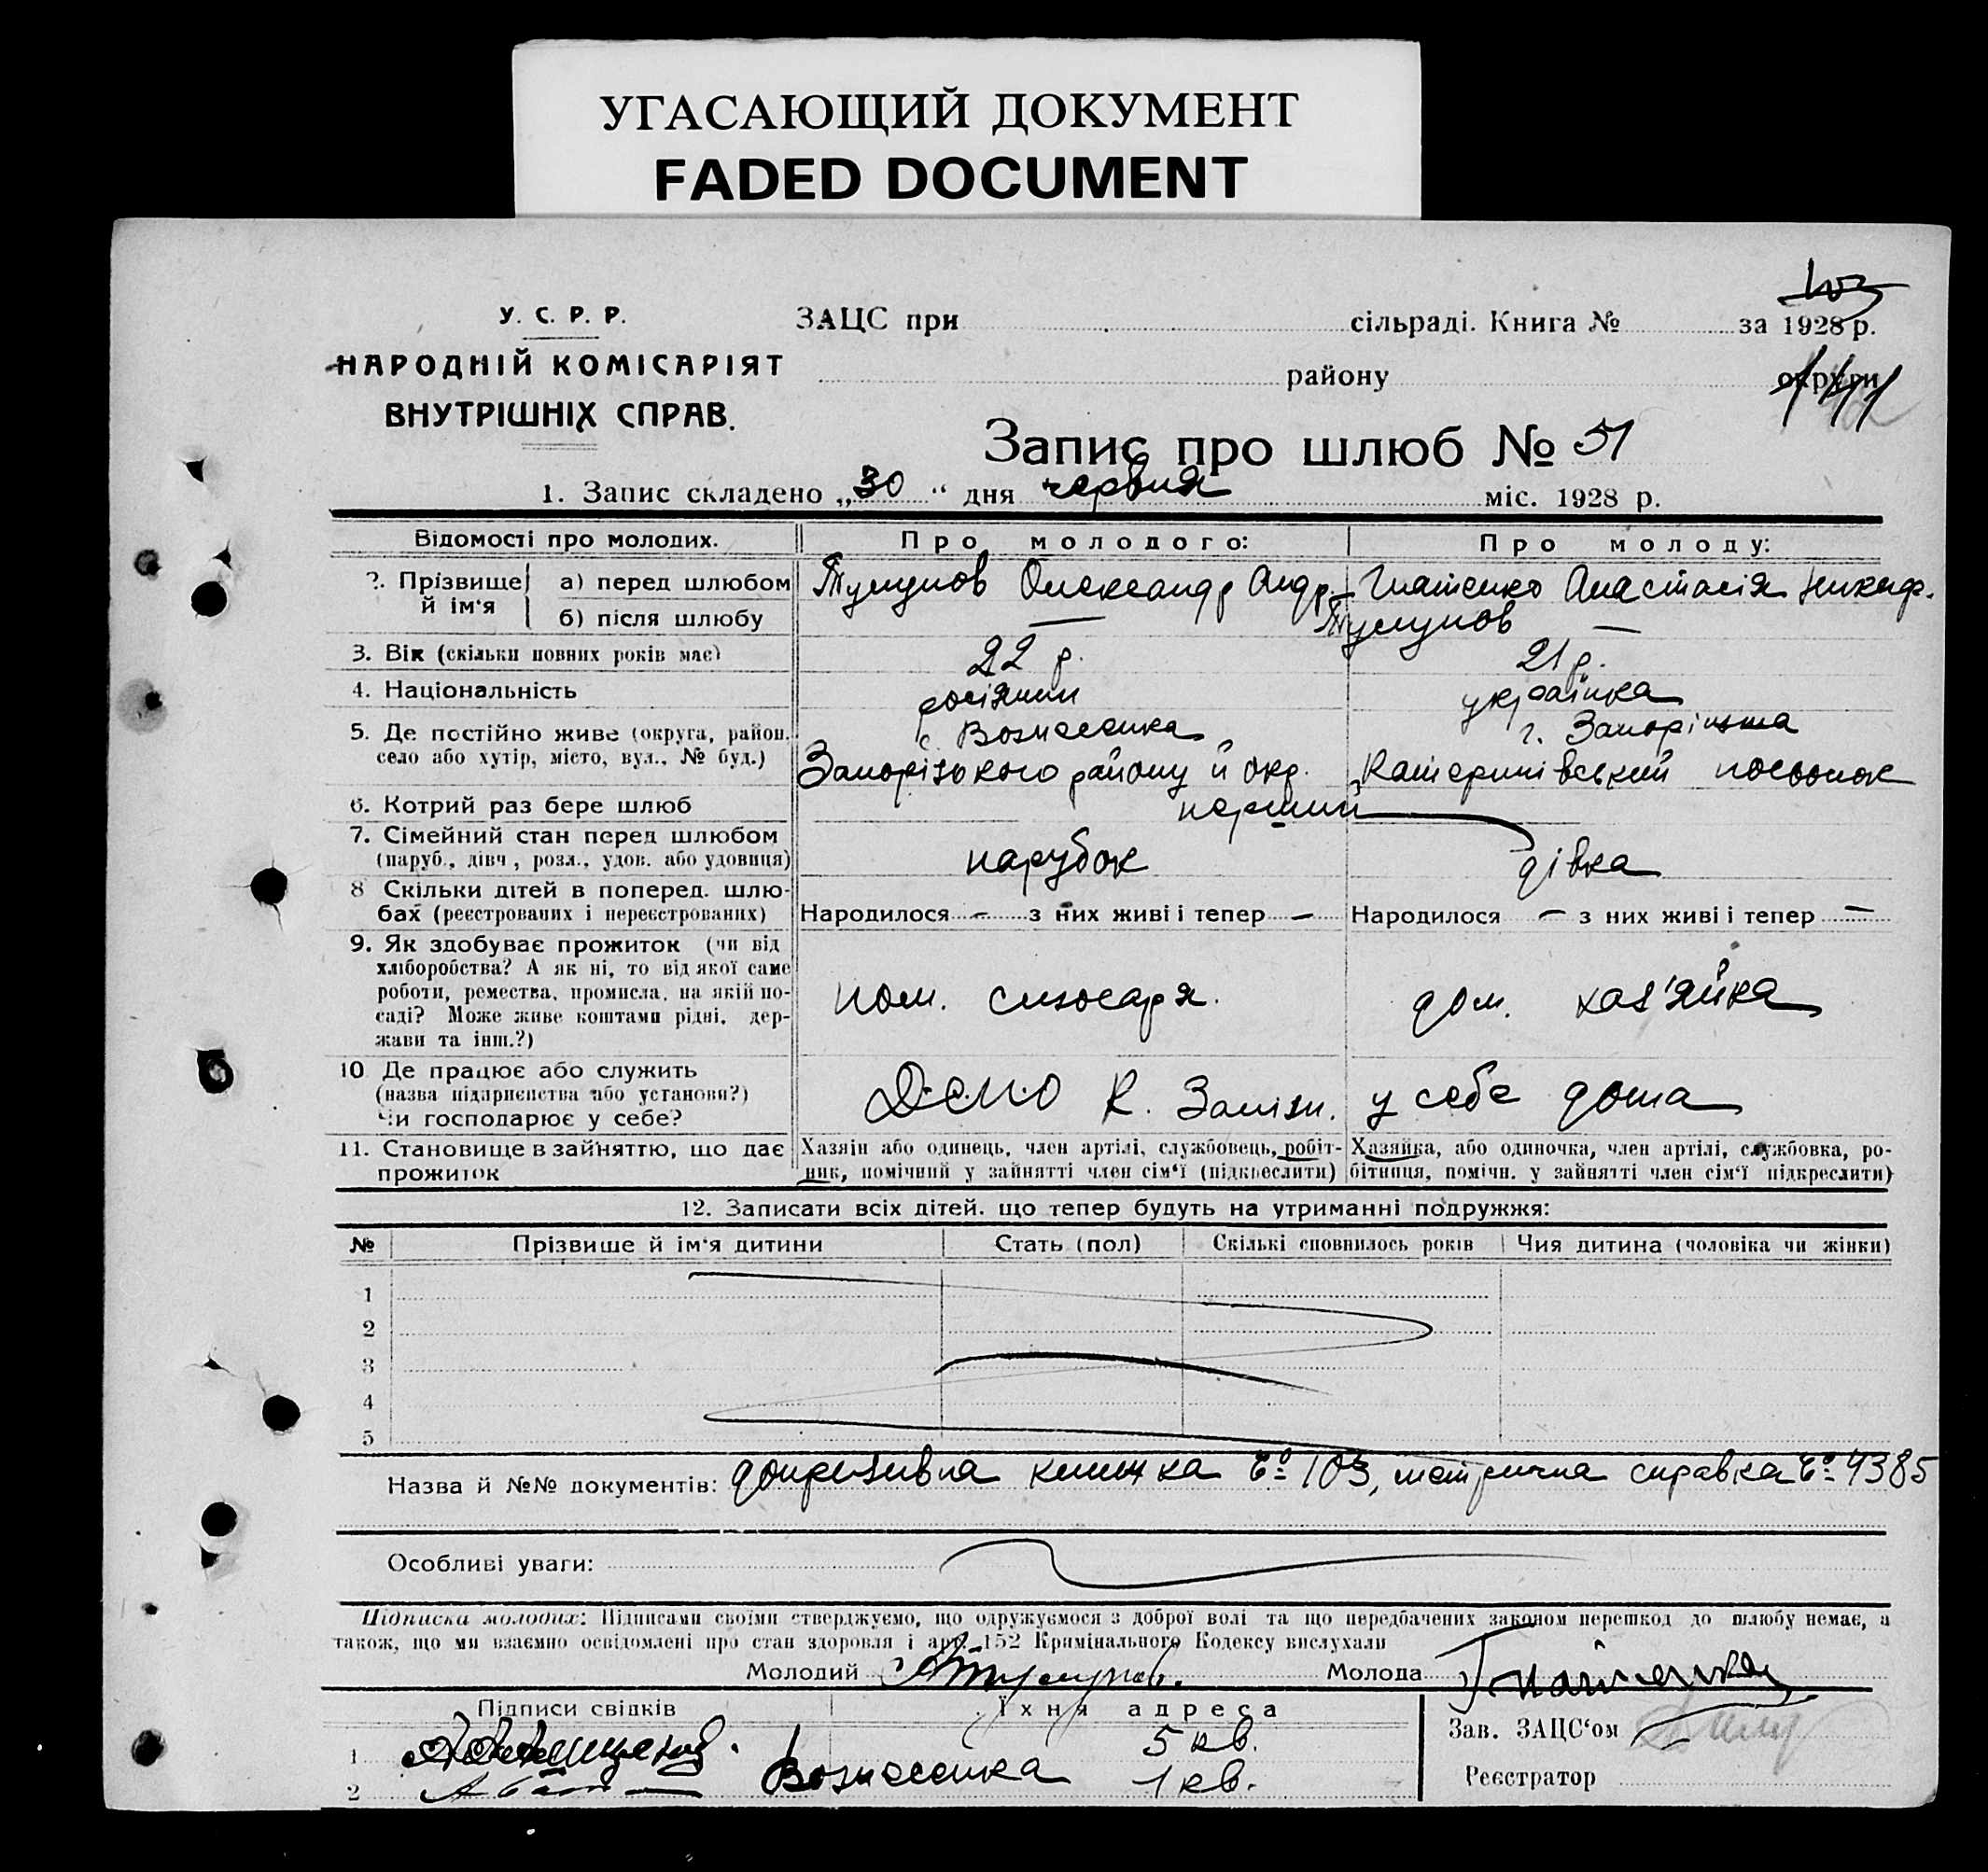 УГАСАЮЩИЙ ДОКУМЕНТ
FADED DOCUMENT
103
У. С. Р. Р.
НАРОДНІЙ КОМІСАРІЯТ
ВНУТРІШНІХ СПРАВ.
ЗАЦС при сільраді. Книга № за 1928 р.
району округи
Запис про шлюб № 51
1. Запис складено „30“ дня червня міс. 1928 р.
Відомості про молодих. Про молодого: Про молоду:
2. Прізвище й ім‘я а) перед шлюбом Тумунов Олександр Андр. Гнатенко Анастасія Никиф.
б) після шлюбу — Тумунов —
3. Вік (скільки повних років має) 22 р. 21 р.
4. Національність росіянин українка
5. Де постійно живе (округа, район, село або хутір, місто, вул., № буд.) с. Вознесенка г. Запоріжжа
Запорізького району й окр. Катеринівський посьолок
6. Котрий раз бере шлюб перший
7. Сімейний стан перед шлюбом
(паруб., дівч., розл., удов. або удовиця) парубок дівка
8 Скільки дітей в поперед. шлюбах (реєстрованих і нереєстрованих) Народилося — з них живі і тепер — Народилося — з них живі і тепер —
9. Як здобуває прожиток (чи від
хліборобства? А як ні, то від якої саме
роботи, ремества, промисла, на якій по-
саді? Може живе коштами рідні, дер-
жави та інш.?) пом. слюсаря. дом. хаз'яйка
10 Де працює або служить
(назва підприємства або установи?)
Чи господарює у себе? Депо К. Залізн. у себе дома
11. Становище в зайняттю, що дає Хазяїн або одинець, член артілі, службовець, робіт- Хазяйка, або одиночка, член артілі, службовка, ро-
прожиток ник, помічний у зайнятті член сім‘ї (підкреслити) бітниця, помічн. у зайнятті член сім‘ї підкреслити)
12. Записати всіх дітей. що тепер будуть на утриманні подружжя:
№ Прізвише й ім‘я дитини Стать (пол) Скількі сповнилось років Чия дитина (чоловіка чи жінки)
1
2
3
4
5
Назва й №№ документів: допризивна книжка № 103, метрична справка № 4385
Особливі уваги:
Підписка молодих: Підписами своїми стверджуємо, що одружуємося з доброї волі та що передбачених законом перешкод до шлюбу немає, а
також, що ми взаємно освідомлені про стан здоровля і арт. 152 Кримінального Кодексу вислухали
Молодий АТумунов. Молода Гнатенко
Підписи свідків Їхня адреса
1 5 кв.
2 Вознесенка 1 кв.
Зав. ЗАЦС‘ом
Реєстратор